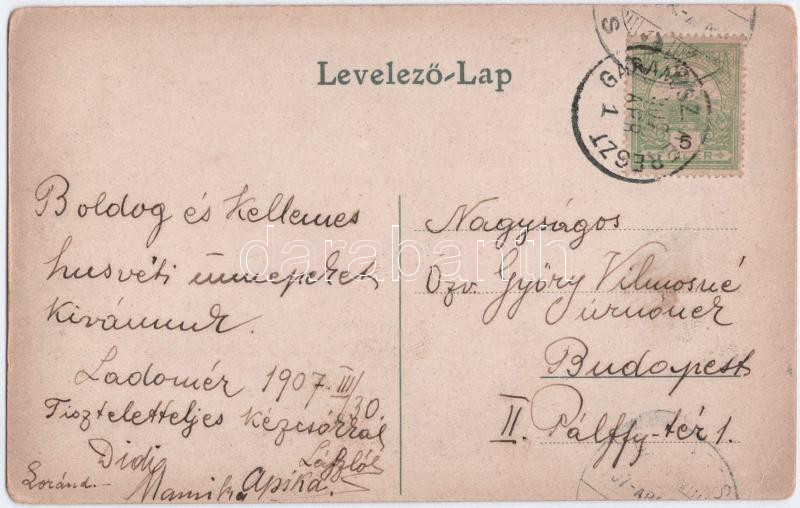 Levelező-Lap
GARAMSZ
REGZT
APR
1
5
Boldog és Kellemes
husvéti ünnepeket
kivánunk.
Ladomér 1907 III/30
Tiszteletteljes kézcsókkal
Didi
Lászlól
Loránd.-
Mamika Apika.
Nagyságos
Özv. Győry Vilmosné
úrnőnek
Budapest
II. Pálffy-tér 1.
darabanth